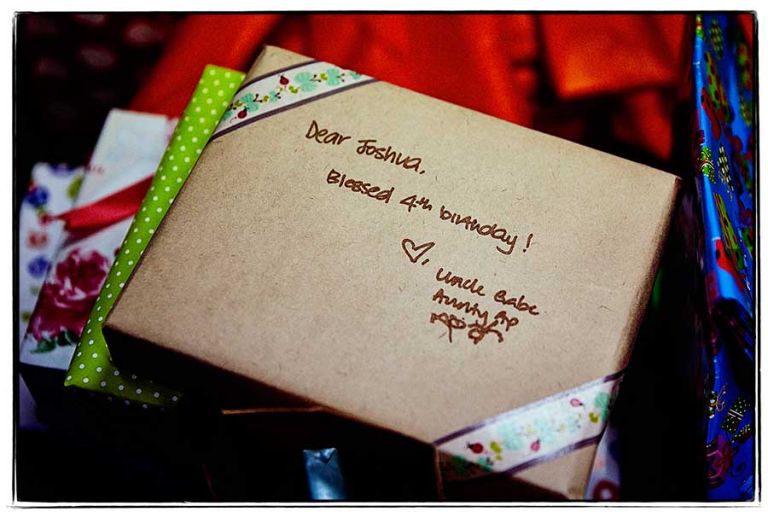 Dear Joshua,
Blessed 4th birthday!
♡, Uncle Babe
Aunty Ap